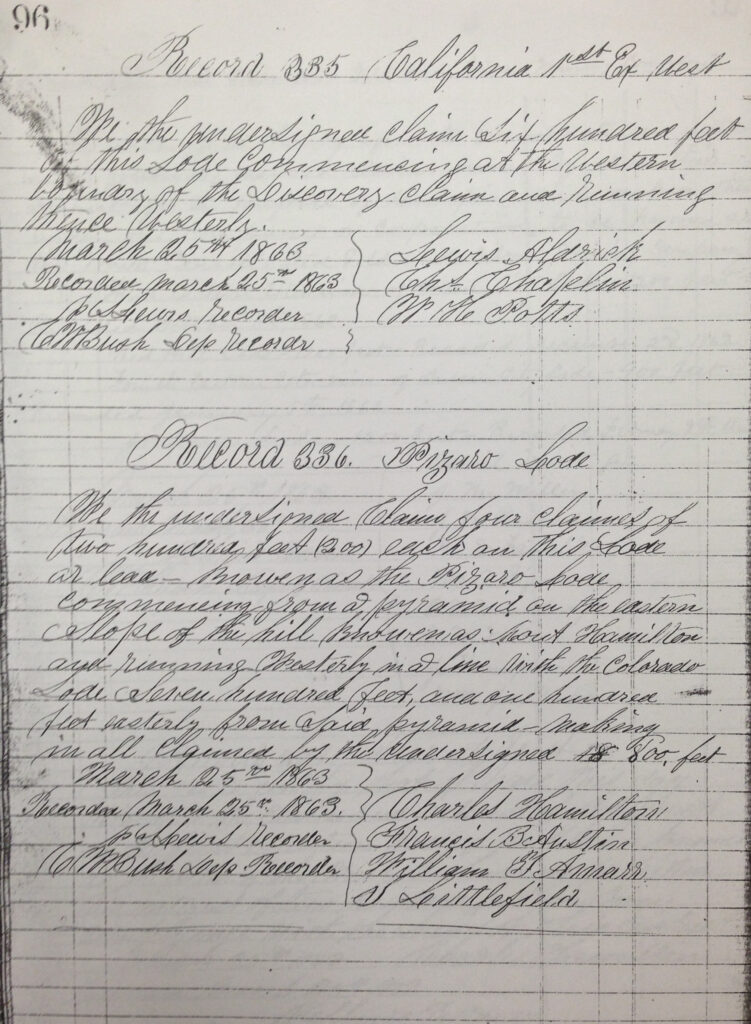 96
Record 335 California 1st Ex West
We the undersigned claim Six hundred feet
on this Lode Commencing at the Western
boundry of the Discovery claim and running
thence Westerly.
March 25th 1863
Recorded March 25th 1863
Lewis recorder
C W Bush Dep recordr
Lewis Aldrick
Chs Chaplin
W H Potts
Record 336. Pizaro Lode
We the undersigned Claim four claimes of
two hundred feet (200) each on this Lode
or lead — Knowen as the Pizaro Lode
commencing from a pyramid on the eastern
Slope of the hill Knowen as Mout Hamilton
and running Westerly in a line with the Colorado
Lode Seven hundred feet, and one hundred
feet easterly from Said pyramid — making
in all Claimed by the undersigned 800. feet
March 25th 1863
Recorded March 25th 1863.
Lewis recorder
C W Bush Dep Recorder
Charles Hamilton
Francis B Austin
William F Amarr
Littlefield